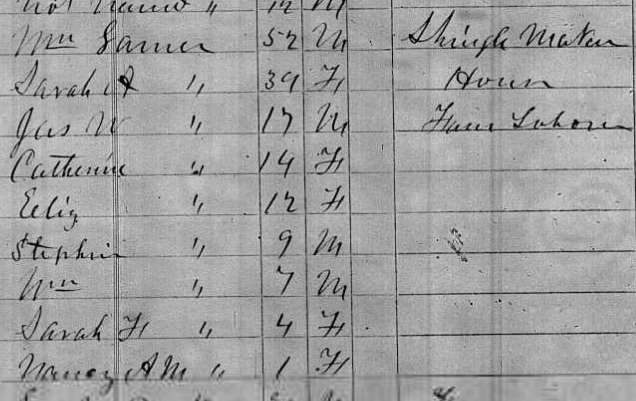 Not Named " 12 M
Wm Garner 52 M Shingle Maker
Sarah A " 39 F House
Jas W " 17 M Farm Laborer
Catherine " 14 F
Eliz " 12 F
Stephen " 9 M
Wm " 7 M
Sarah F " 4 F
Nancy A M " 1 F